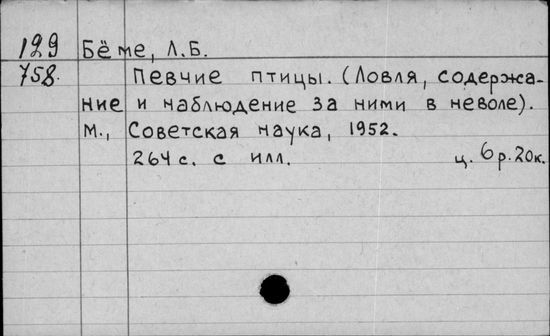 129 Бёме, Л.Б.
758. Певчие птицы. (Ловля, содержа-
ние и наблюдение за ними в неволе).
М., Советская наука, 1952.
264 с. с илл. ц. 6 р. 20 к.